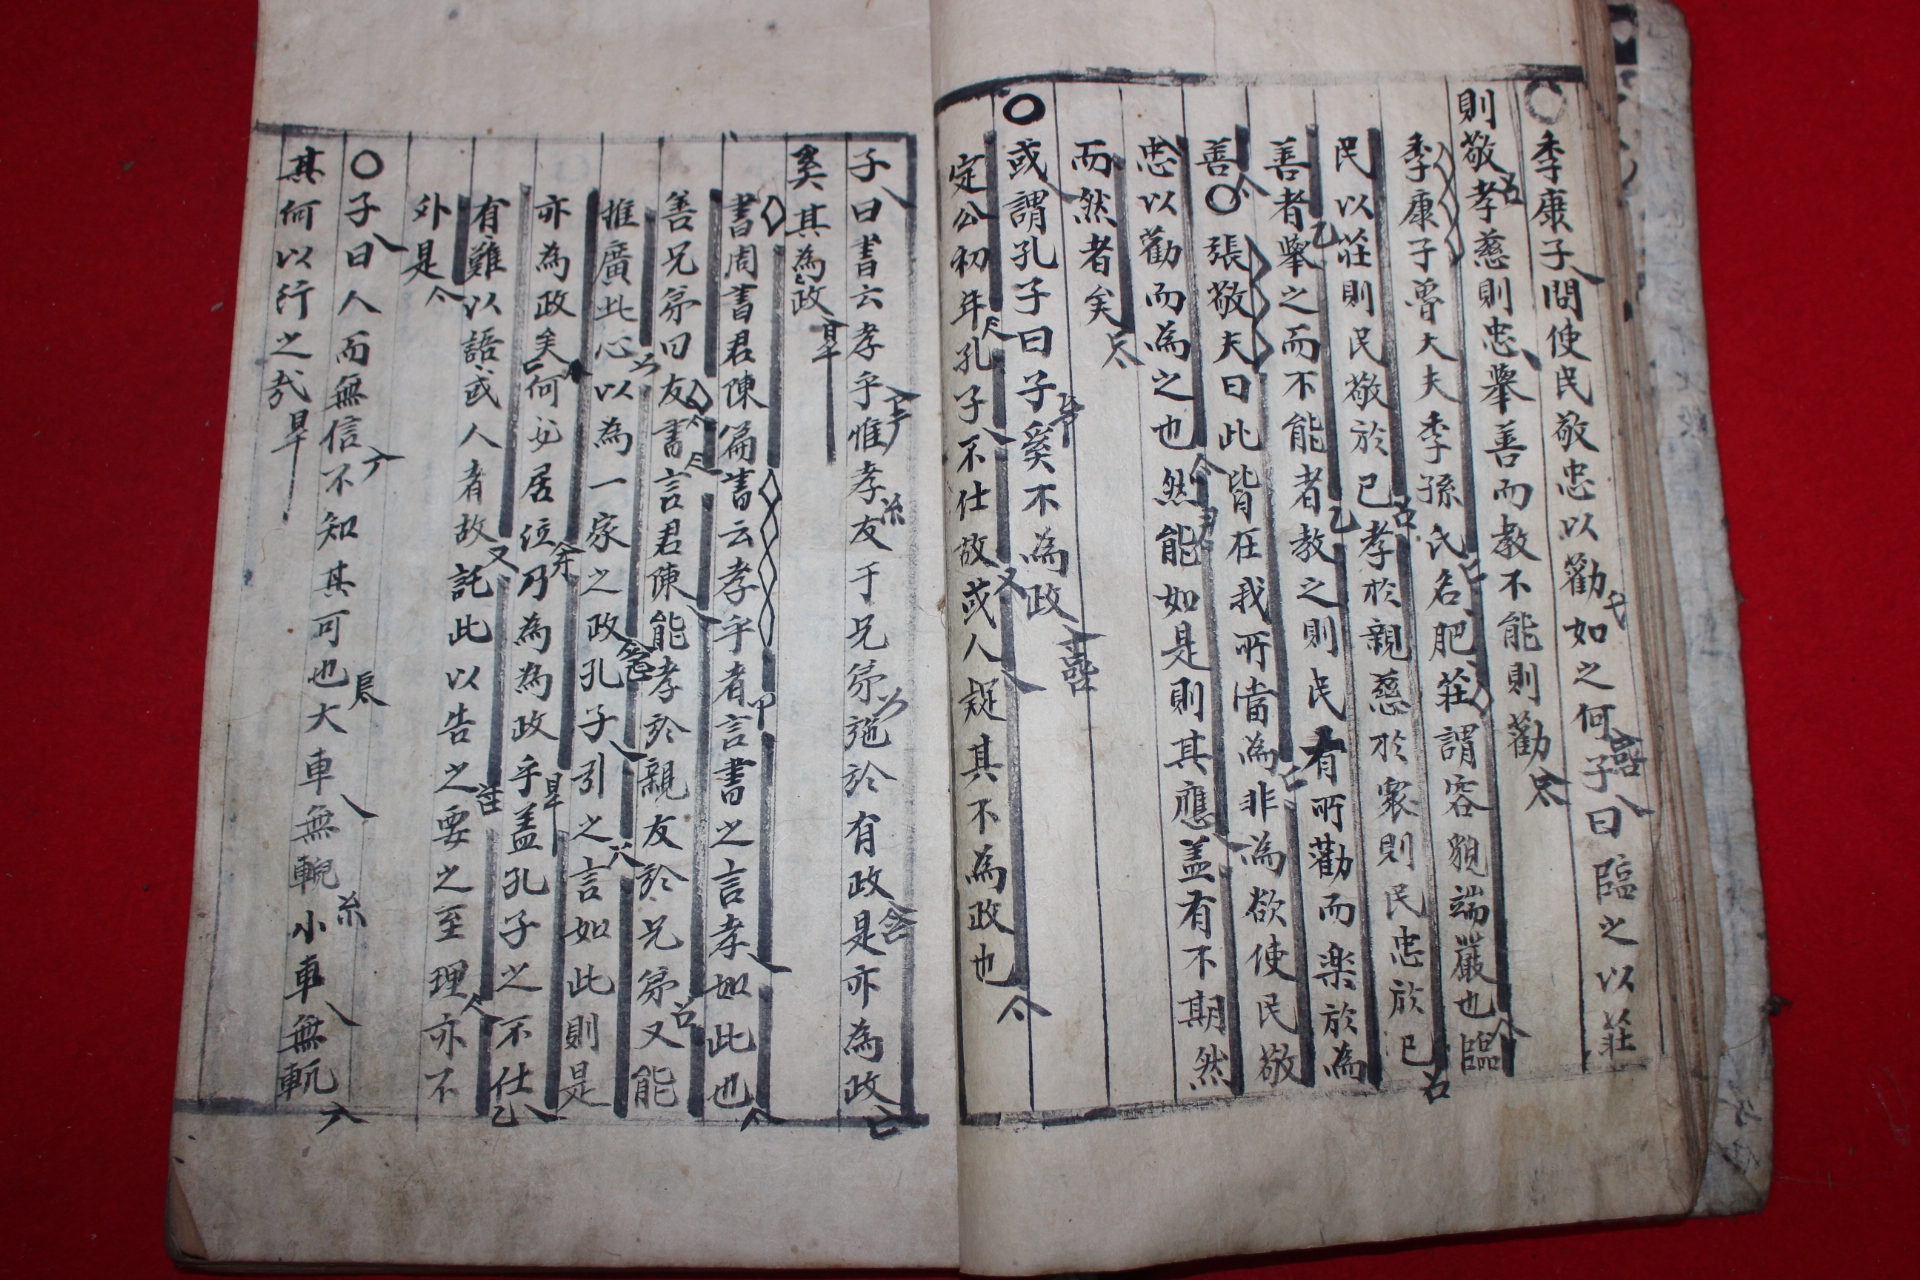 ○季康子問使民敬忠以勸如之何子曰臨之以莊
則敬孝慈則忠擧善而教不能則勸
季康子魯大夫季孫氏名肥莊謂容貌端嚴也臨
民以莊則民敬於已孝於親慈於衆則民忠於已
善者擧之而不能者教之則民有所勸而楽於為
善○張敬夫曰此皆在我所當為非為欲使民敬
忠以勸而為之也然能如是則其應盖有不期然
而然者矣
○或謂孔子曰子奚不為政
定公初年孔子不仕故或人疑其不為政也
子曰書云孝乎惟孝友于兄弟施於有政是亦為政
奚其為為政
書周書君陳篇書云孝乎者言書之言孝如此也
善兄弟曰友書言君陳能孝於親友於兄弟又能
推廣此心以為一家之政孔子引之言如此則是
亦為政矣何必居位乃為為政乎盖孔子之不仕
有難以語或人者故託此以告之要之至理亦不
外是
○子曰人而無信不知其可也大車無輗小車無軏
其何以行之哉